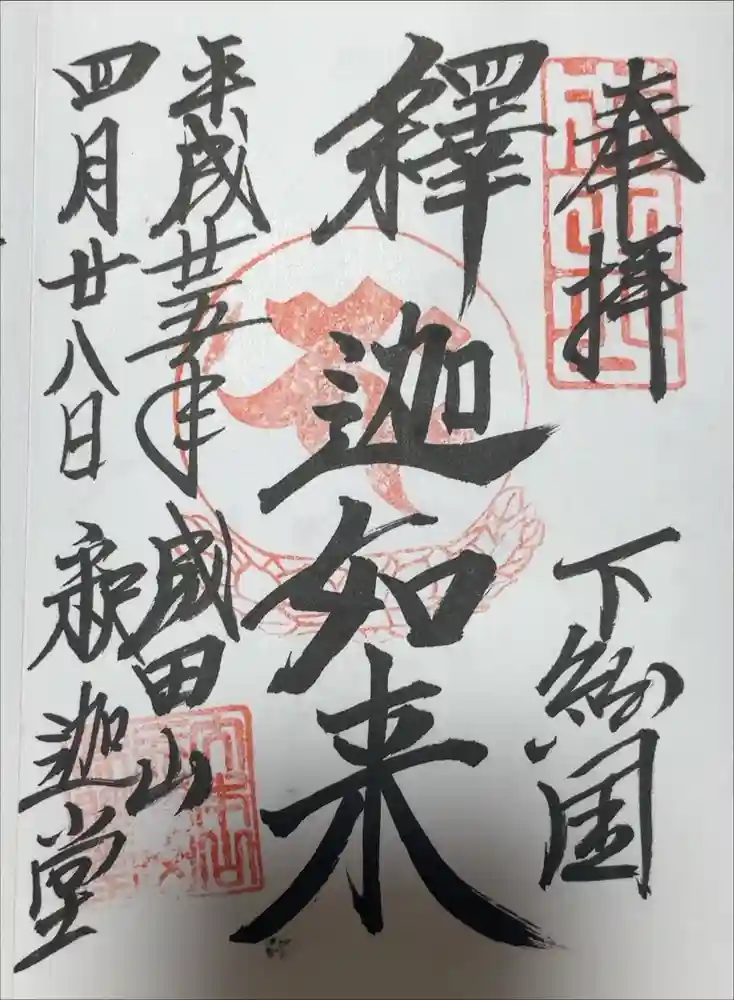 奉拝
下総国
釋迦如来
平成廿五年
成田山
四月廿八日
釈迦堂